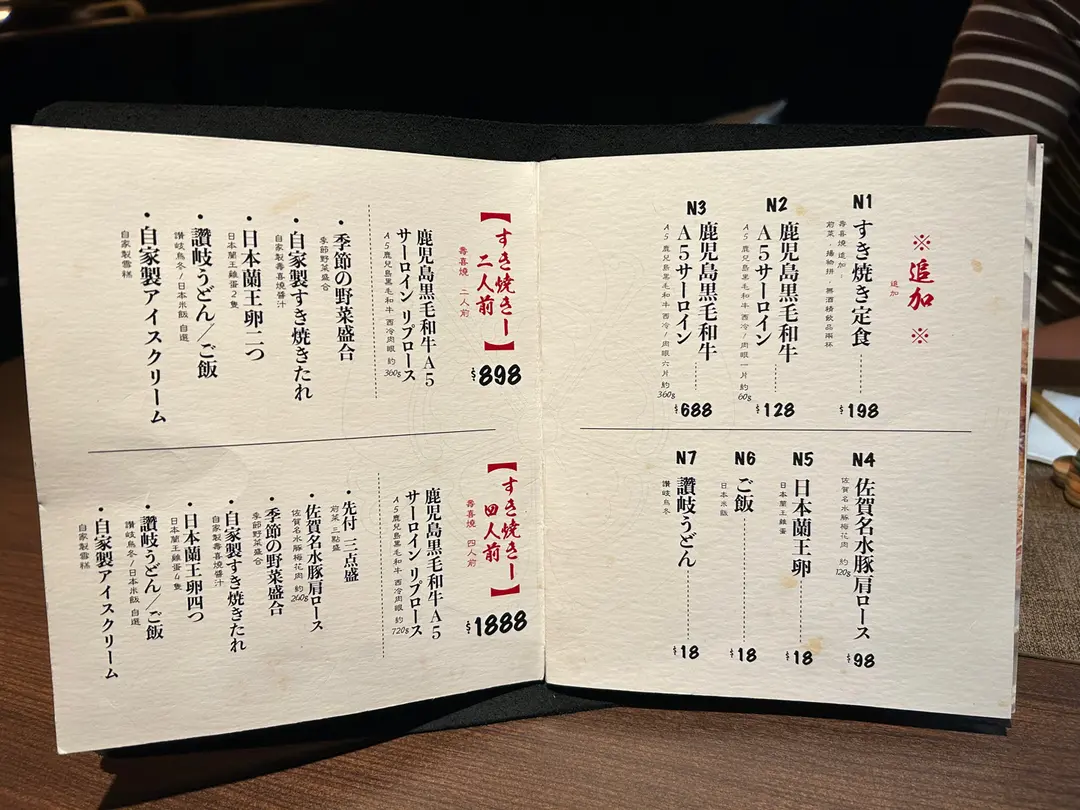 ※ 追加 ※
追加
N1
すき焼き定食
壽喜燒追加:
前菜,揚物拼,無酒精飲品兩杯
$198
N2
鹿児島黒毛和牛
A5サーロイン
A5鹿兒島黑毛和牛 西冷/肉眼 一片 約60g
$128
N3
鹿児島黒毛和牛
A5サーロイン
A5鹿兒島黑毛和牛 西冷/肉眼 六片 約360g
$688
N4
佐賀名水豚肩ロース
佐賀名水豚梅花肉 約120g
$98
N5
日本蘭王卵
日本蘭王雞蛋
$18
N6
ご飯
日本米飯
$18
N7
讃岐うどん
讃岐烏冬
$18
【すき焼きー
二人前】
壽喜燒 二人前
$898
鹿児島黒毛和牛A5
サーロイン リブロース
A5鹿兒島黑毛和牛 西冷肉眼 約360g
・季節の野菜盛合
季節野菜盛合
・自家製すき焼きたれ
自家製壽喜燒醬汁
・日本蘭王卵二つ
日本蘭王雞蛋2隻
・讃岐うどん/ご飯
讃岐烏冬/日本米飯 自選
・自家製アイスクリーム
自家製雪糕
【すき焼きー
四人前】
壽喜燒 四人前
$1888
鹿児島黒毛和牛A5
サーロイン リブロース
A5鹿兒島黑毛和牛 西冷肉眼 約720g
・先付 三点盛
前菜三點盛
・佐賀名水豚肩ロース
佐賀名水豚梅花肉 約260g
・季節の野菜盛合
季節野菜盛合
・自家製すき焼きたれ
自家製壽喜燒醬汁
・日本蘭王卵四つ
日本蘭王雞蛋4隻
・讃岐うどん/ご飯
讃岐烏冬/日本米飯 自選
・自家製アイスクリーム
自家製雪糕